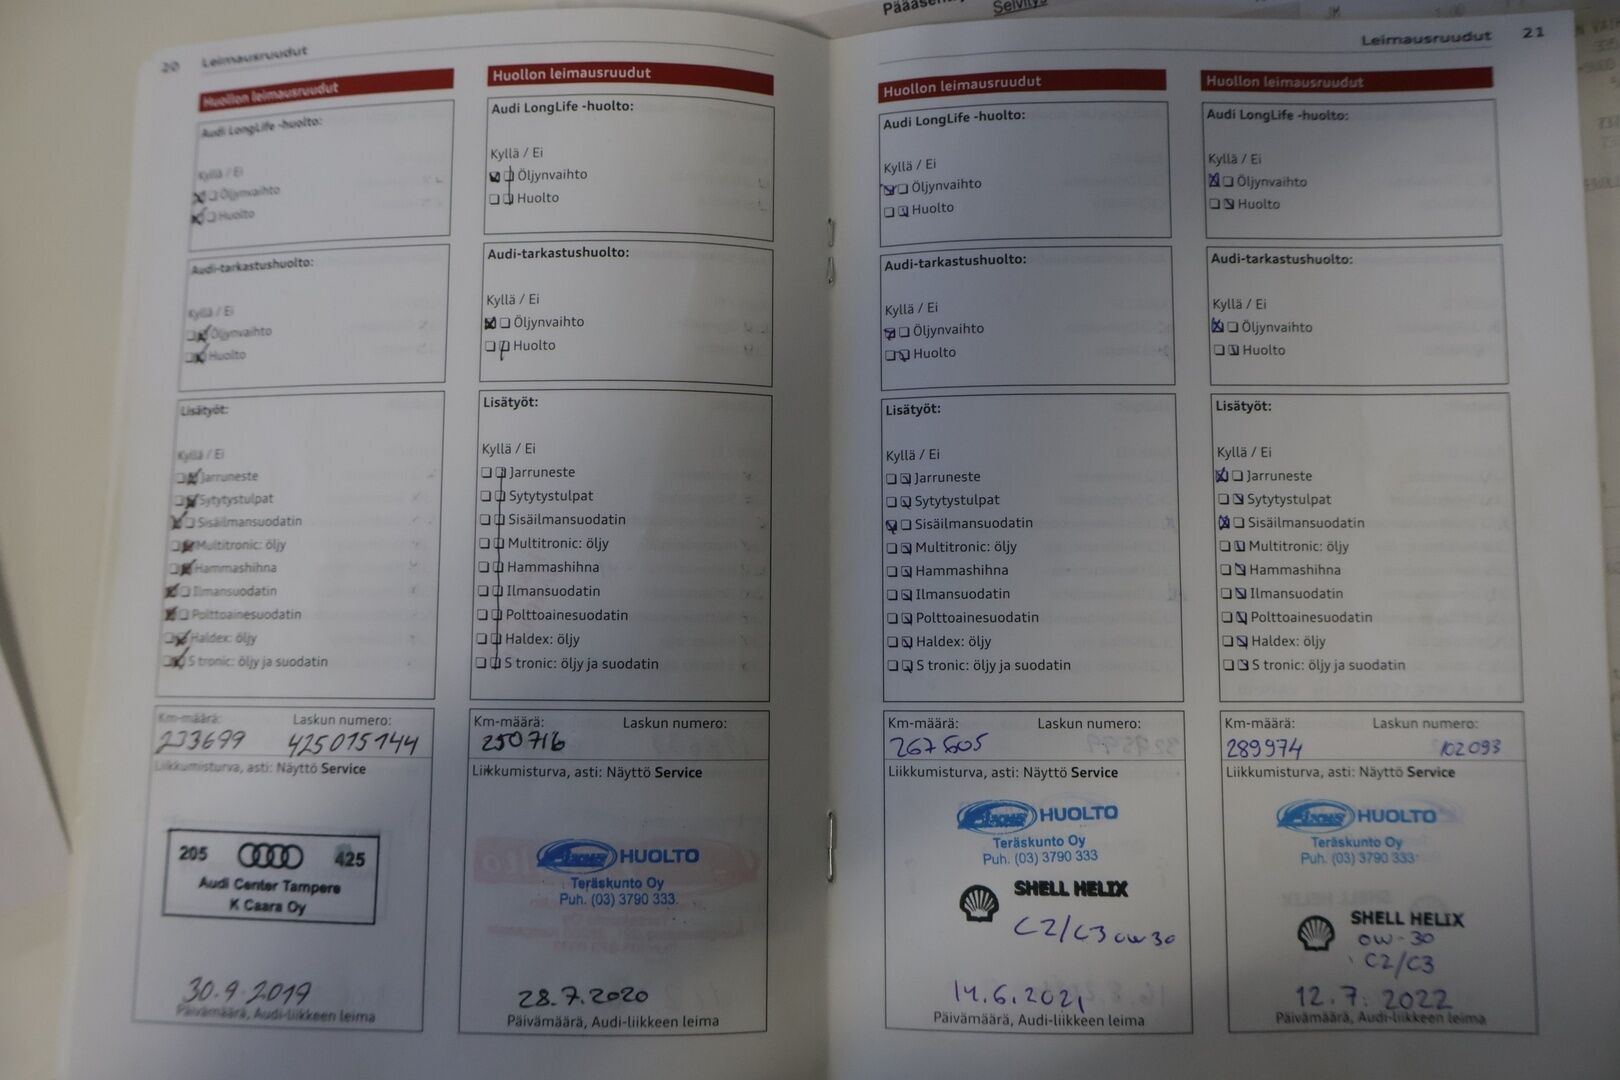 Pääasen
Selvitys
20 Leimausruudut
Huollon leimausruudut
Audi LongLife -huolto:
Kyllä / Ei
Öljynvaihto
Huolto
Audi-tarkastushuolto:
Kyllä / Ei
Öljynvaihto
Huolto
Lisätyöt:
Kyllä / Ei
Jarruneste
Sytytystulpat
Sisäilmansuodatin
Multitronic: öljy
Hammashihna
Ilmansuodatin
Polttoainesuodatin
Haldex: öljy
S tronic: öljy ja suodatin
Km-määrä: Laskun numero:
233699 425015144
Liikkumisturva, asti: Näyttö Service
205 425
Audi Center Tampere
K Caara Oy
30.9.2019
Päivämäärä, Audi-liikkeen leima
Huollon leimausruudut
Audi LongLife -huolto:
Kyllä / Ei
Öljynvaihto
Huolto
Audi-tarkastushuolto:
Kyllä / Ei
Öljynvaihto
Huolto
Lisätyöt:
Kyllä / Ei
Jarruneste
Sytytystulpat
Sisäilmansuodatin
Multitronic: öljy
Hammashihna
Ilmansuodatin
Polttoainesuodatin
Haldex: öljy
S tronic: öljy ja suodatin
Km-määrä: Laskun numero:
250716
Liikkumisturva, asti: Näyttö Service
HUOLTO
Teräskunto Oy
Puh. (03) 3790 333
28.7.2020
Päivämäärä, Audi-liikkeen leima
Leimausruudut 21
Huollon leimausruudut
Audi LongLife -huolto:
Kyllä / Ei
Öljynvaihto
Huolto
Audi-tarkastushuolto:
Kyllä / Ei
Öljynvaihto
Huolto
Lisätyöt:
Kyllä / Ei
Jarruneste
Sytytystulpat
Sisäilmansuodatin
Multitronic: öljy
Hammashihna
Ilmansuodatin
Polttoainesuodatin
Haldex: öljy
S tronic: öljy ja suodatin
Km-määrä: Laskun numero:
267605
Liikkumisturva, asti: Näyttö Service
HUOLTO
Teräskunto Oy
Puh. (03) 3790 333
SHELL HELIX
C2/C3 0W30
14.6.2021
Päivämäärä, Audi-liikkeen leima
Huollon leimausruudut
Audi LongLife -huolto:
Kyllä / Ei
Öljynvaihto
Huolto
Audi-tarkastushuolto:
Kyllä / Ei
Öljynvaihto
Huolto
Lisätyöt:
Kyllä / Ei
Jarruneste
Sytytystulpat
Sisäilmansuodatin
Multitronic: öljy
Hammashihna
Ilmansuodatin
Polttoainesuodatin
Haldex: öljy
S tronic: öljy ja suodatin
Km-määrä: Laskun numero:
289974 102093
Liikkumisturva, asti: Näyttö Service
HUOLTO
Teräskunto Oy
Puh. (03) 3790 333
SHELL HELIX
0W-30
C2/C3
12.7.2022
Päivämäärä, Audi-liikkeen leima